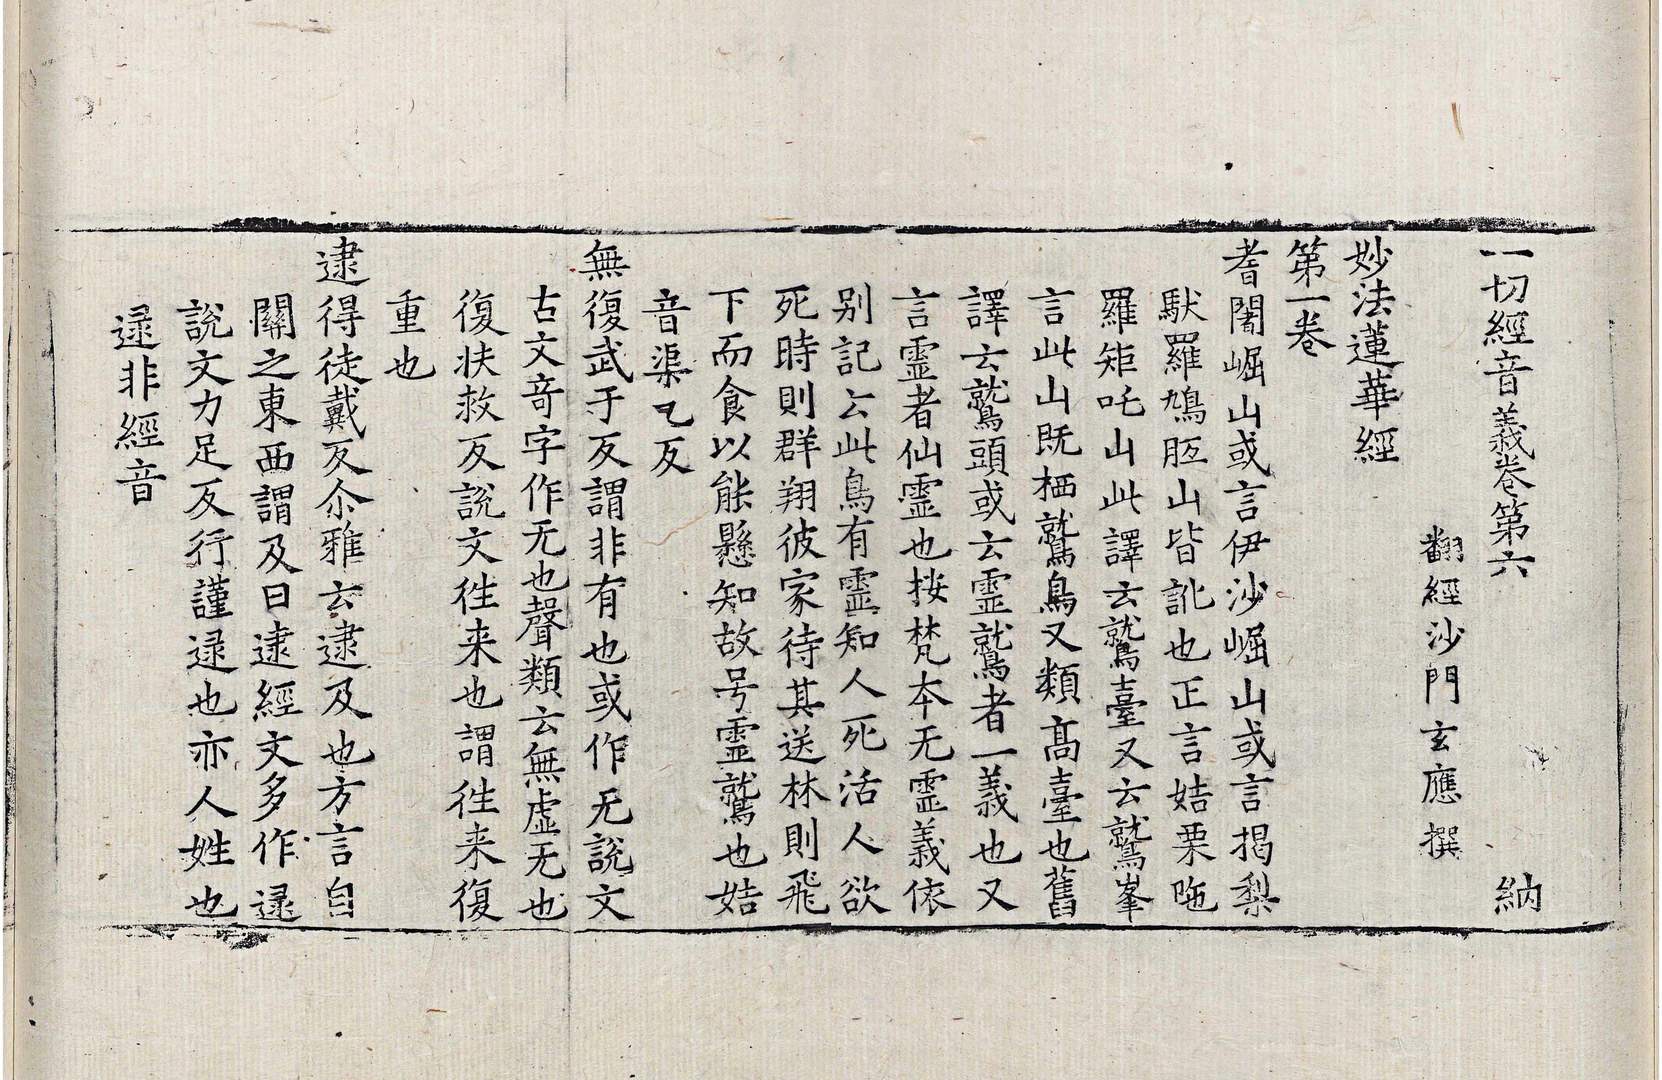 一切經音義卷第六 納
翻經沙門玄應撰
妙法蓮華經
第一卷
耆闍崛山或言伊沙崛山或言揭梨
馱羅鳩胝山皆訛也正言姞栗陁
羅矩吒山此譯云鷲臺又云鷲峯
言此山既栖鷲鳥又類髙臺也舊
譯云鷲頭或云靈鷲者一義也又
言靈者仙靈也桉梵夲无靈義依
别記云此鳥有靈知人死活人欲
死時則群翔彼家待其送林則飛
下而食以能懸知故号靈鷲也姞
音渠乙反
無復武于反謂非有也或作无說文
古文竒字作无也聲類云無虛无也
復扶救反說文徃来也謂徃来復
重也
逮得徒戴反尒雅云逮及也方言自
關之東西謂及曰逮經文多作逯
說文力足反行謹逯也亦人姓也
逯非經音